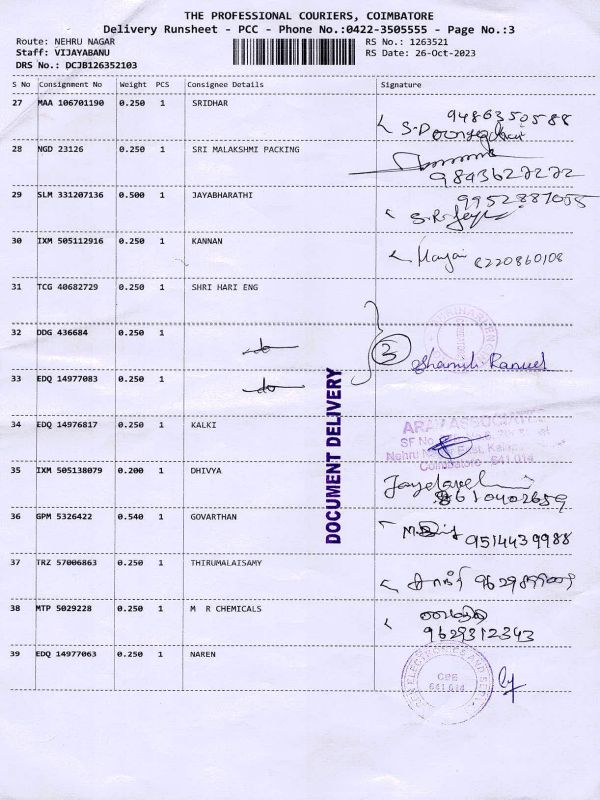 THE PROFESSIONAL COURIERS, COIMBATORE
Delivery Runsheet - PCC - Phone No.:0422-3505555 - Page No.:3
Route: NEHRU NAGAR RS No.: 1263521
Staff: VIJAYABANU RS Date: 26-Oct-2023
DRS No.: DCJB126352103
S No Consignment No Weight PCS Consignee Details Signature
27 MAA 106701190 0.250 1 SRIDHAR 9486350588
28 NGD 23126 0.250 1 SRI MALAKSHMI PACKING
9843622222
29 SLM 331207136 0.500 1 JAYABHARATHI 9952887055
30 IXM 505112916 0.250 1 KANNAN 8220860108
31 TCG 40682729 0.250 1 SHRI HARI ENG
32 DDG 436684 0.250 1 do 3
33 EDQ 14977083 0.250 1 do
DOCUMENT DELIVERY
34 EDQ 14976817 0.250 1 KALKI
ARAV ASSOCIATES
SF No
Nehru
Coimbatore 641 014
35 IXM 505138079 0.200 1 DHIVYA
8610402659
36 GPM 5326422 0.540 1 GOVARTHAN
9514439988
37 TRZ 57006863 0.250 1 THIRUMALAISAMY
38 MTP 5029228 0.250 1 M R CHEMICALS
9629312343
39 EDQ 14977063 0.250 1 NAREN
ELECTRONICS AND
CBE
641 014